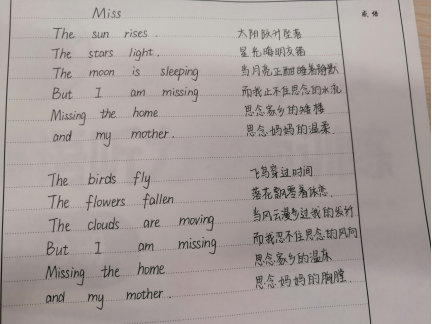 Miss
成绩
The sun rises. 太阳跃升坠落
The stars light. 星光晦明交错
The moon is sleeping 当月亮正酣睡着静默
But I am missing 而我止不住思念的水流
Missing the home 思念家乡的矮楼
and my mother. 思念妈妈的温柔
The birds fly 飞鸟穿过时间
The flowers fallen 落花飘零着
The clouds are moving 当风云漫步过我的发梢
But I am missing 而我忍不住思念的风向
Missing the home 思念家乡的温床
and my mother. 思念妈妈的胸膛